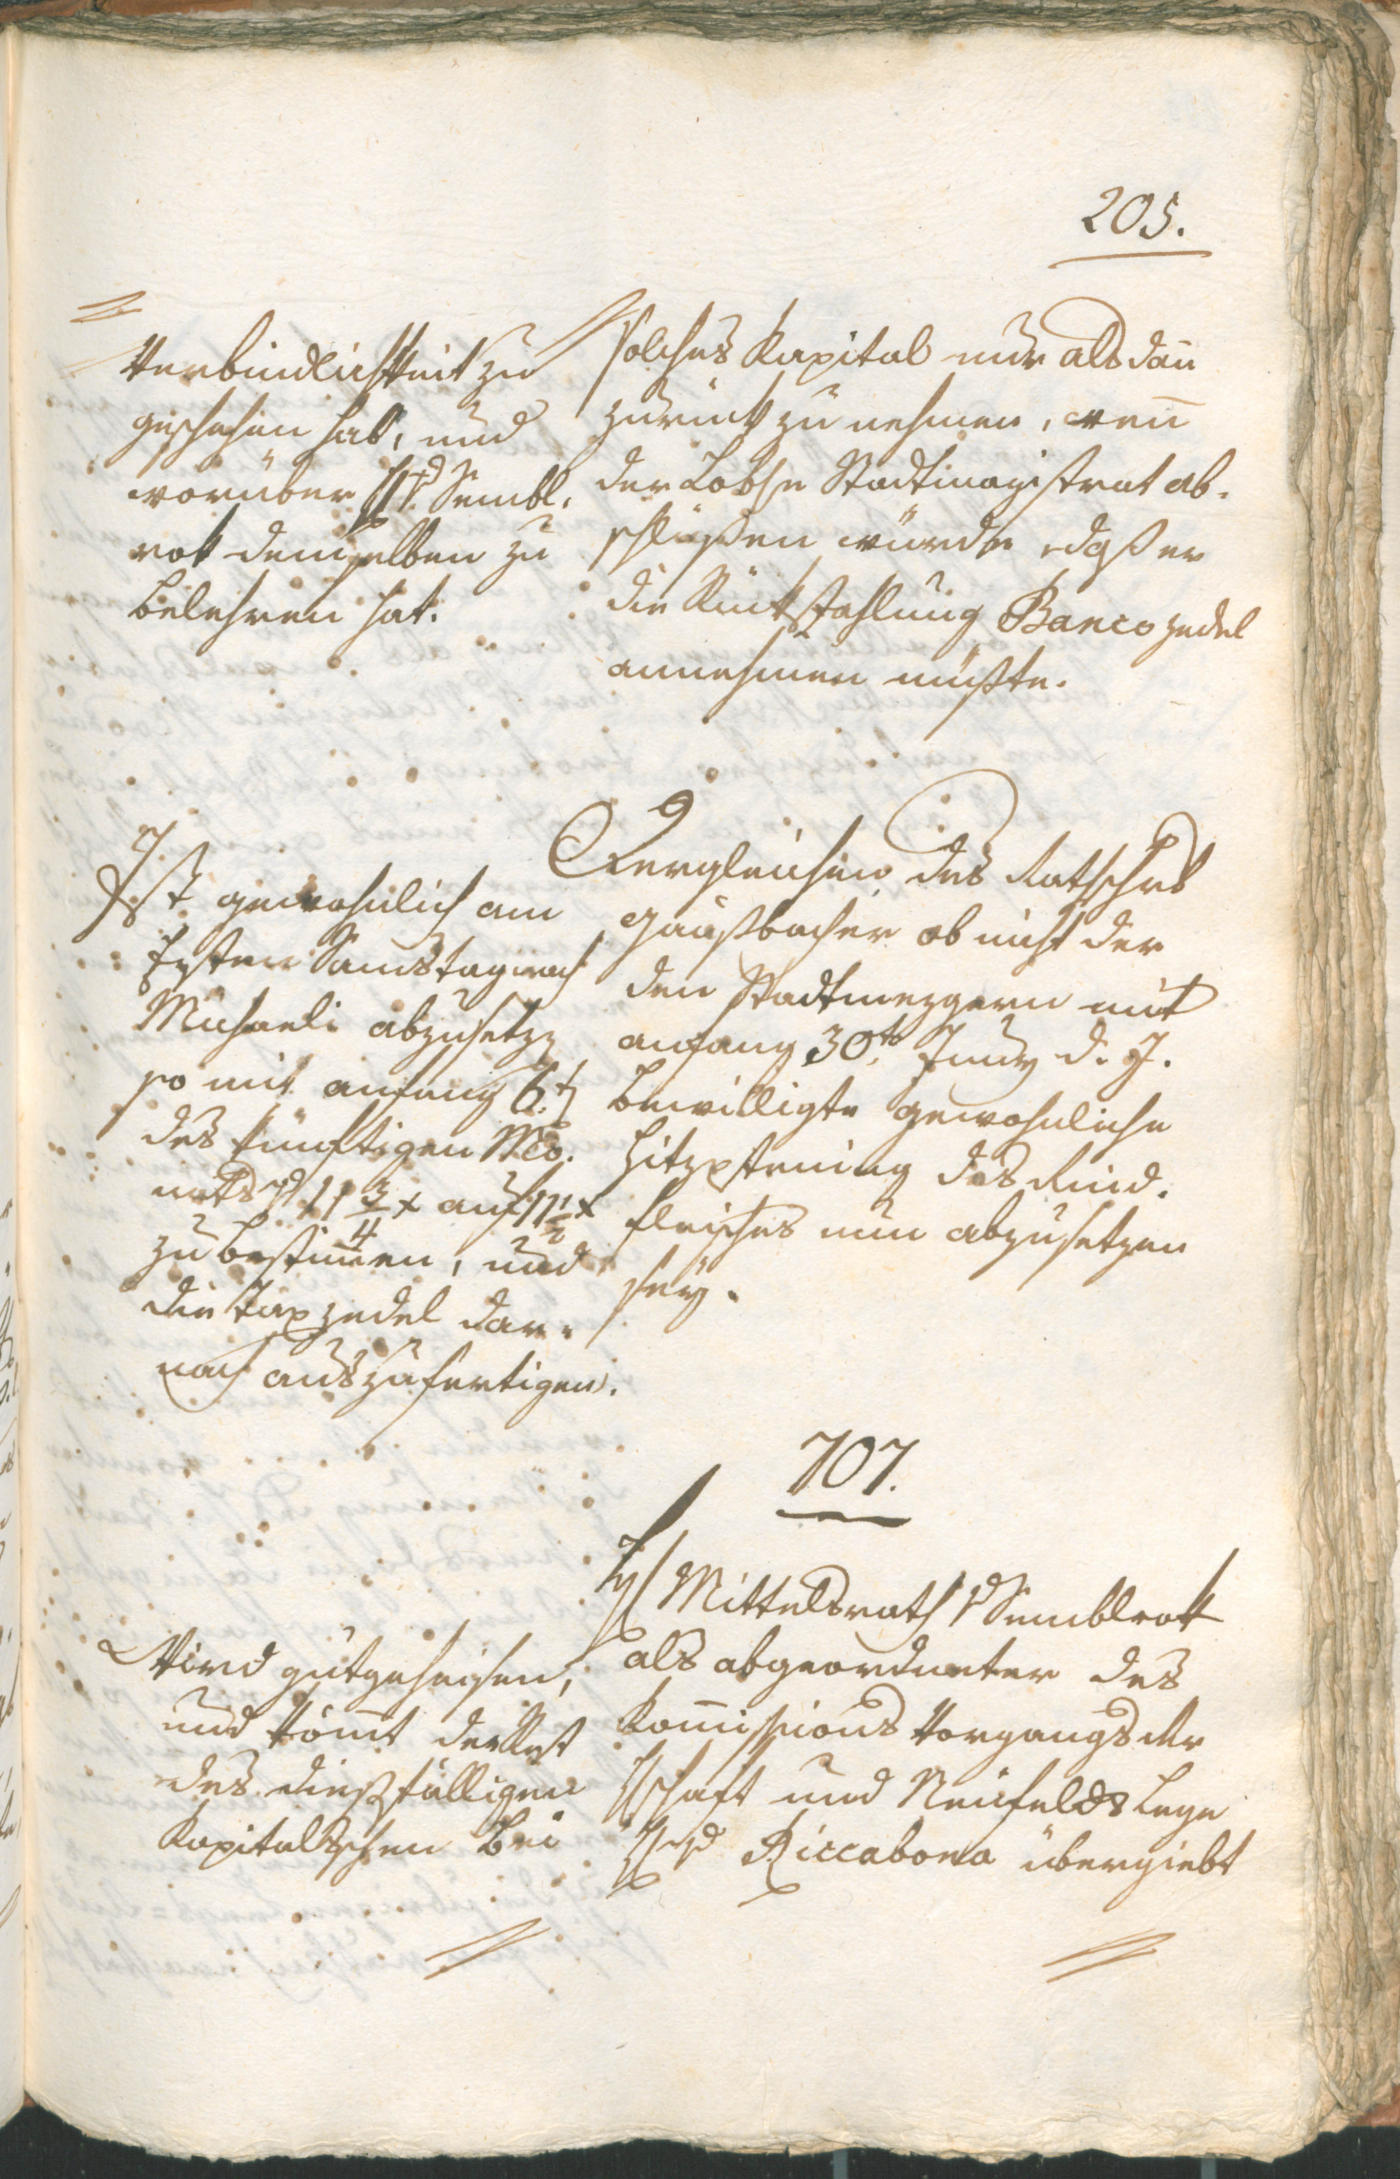 205.
Verbindlichkeit zu
geschehen hab, und
worüber H Sembl.
rok demselben zu
belehren hat.
solches Kapital nur als dan̄
zurück zu nehmen, wen̄
der Lobhe Stadtmagistrat ab.
schlüßen würde, daß er
die Rückzahlung Bancozedel
annehmen müßte.
Ist gewohnlich am
Ersten Samstag nach
Michaeli abzusetzen
so mit anfang 6t
des künftigen Mo.
nats 11 3/4 x auf 11 1/2 x
zu bestim̄en, und
die Taxzedel dar.
nach auszufertigen.
Vergleichen des Rathschrbs
Gausbacher ob nicht der
den Stadtmezgern mit
anfang 30ten Juny d. J.
bewilligte gewohnliche
Hitzpfening des Rind.
fleisches nun abzusetzen
sey.
707.
H Mittelsrath Semblrok
als abgeordneter des
Kom̄issions Vorgangs der
Hschaft und Neufelds Lege
H Riccabona übergiebt
Wird gutgeheisen,
und kom̄t der Rest
des diesfälligen
Kapitalschen bei